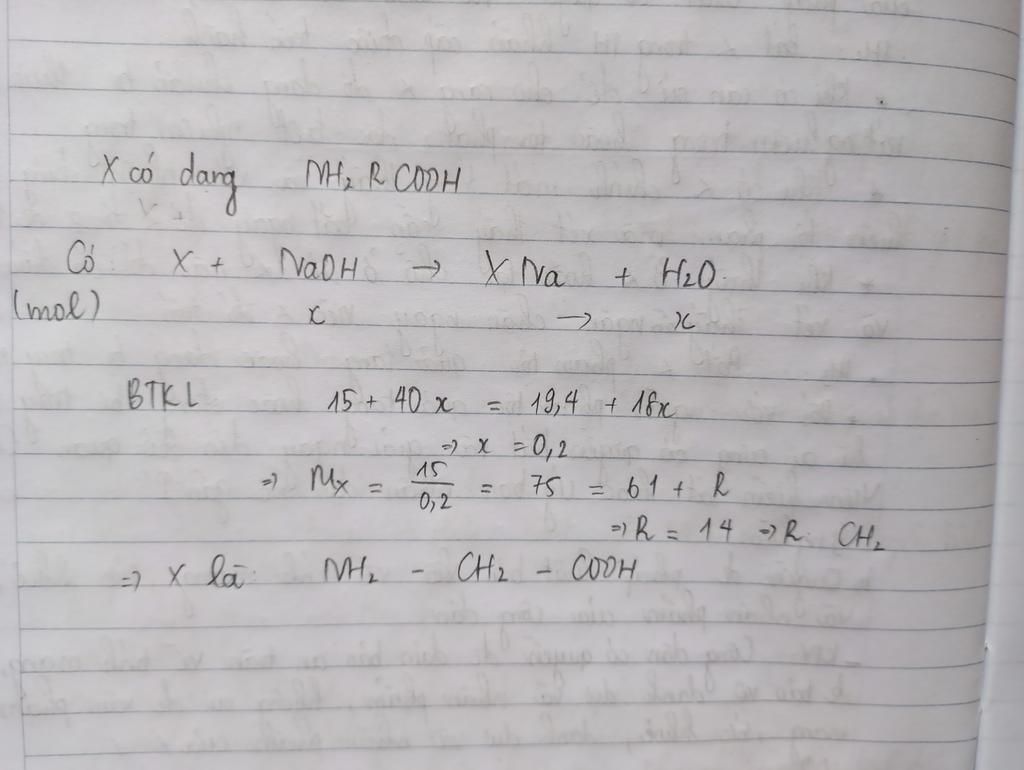 X có dạng NH2 R COOH
Có: X + NaOH → X Na + H2O
(mol) x → x
BTKL 15 + 40 x = 19,4 + 18x
=> x = 0,2
=> Mx = 15/0,2 = 75 = 61 + R
=> R = 14 => R: CH2
=> X là: NH2 - CH2 - COOH